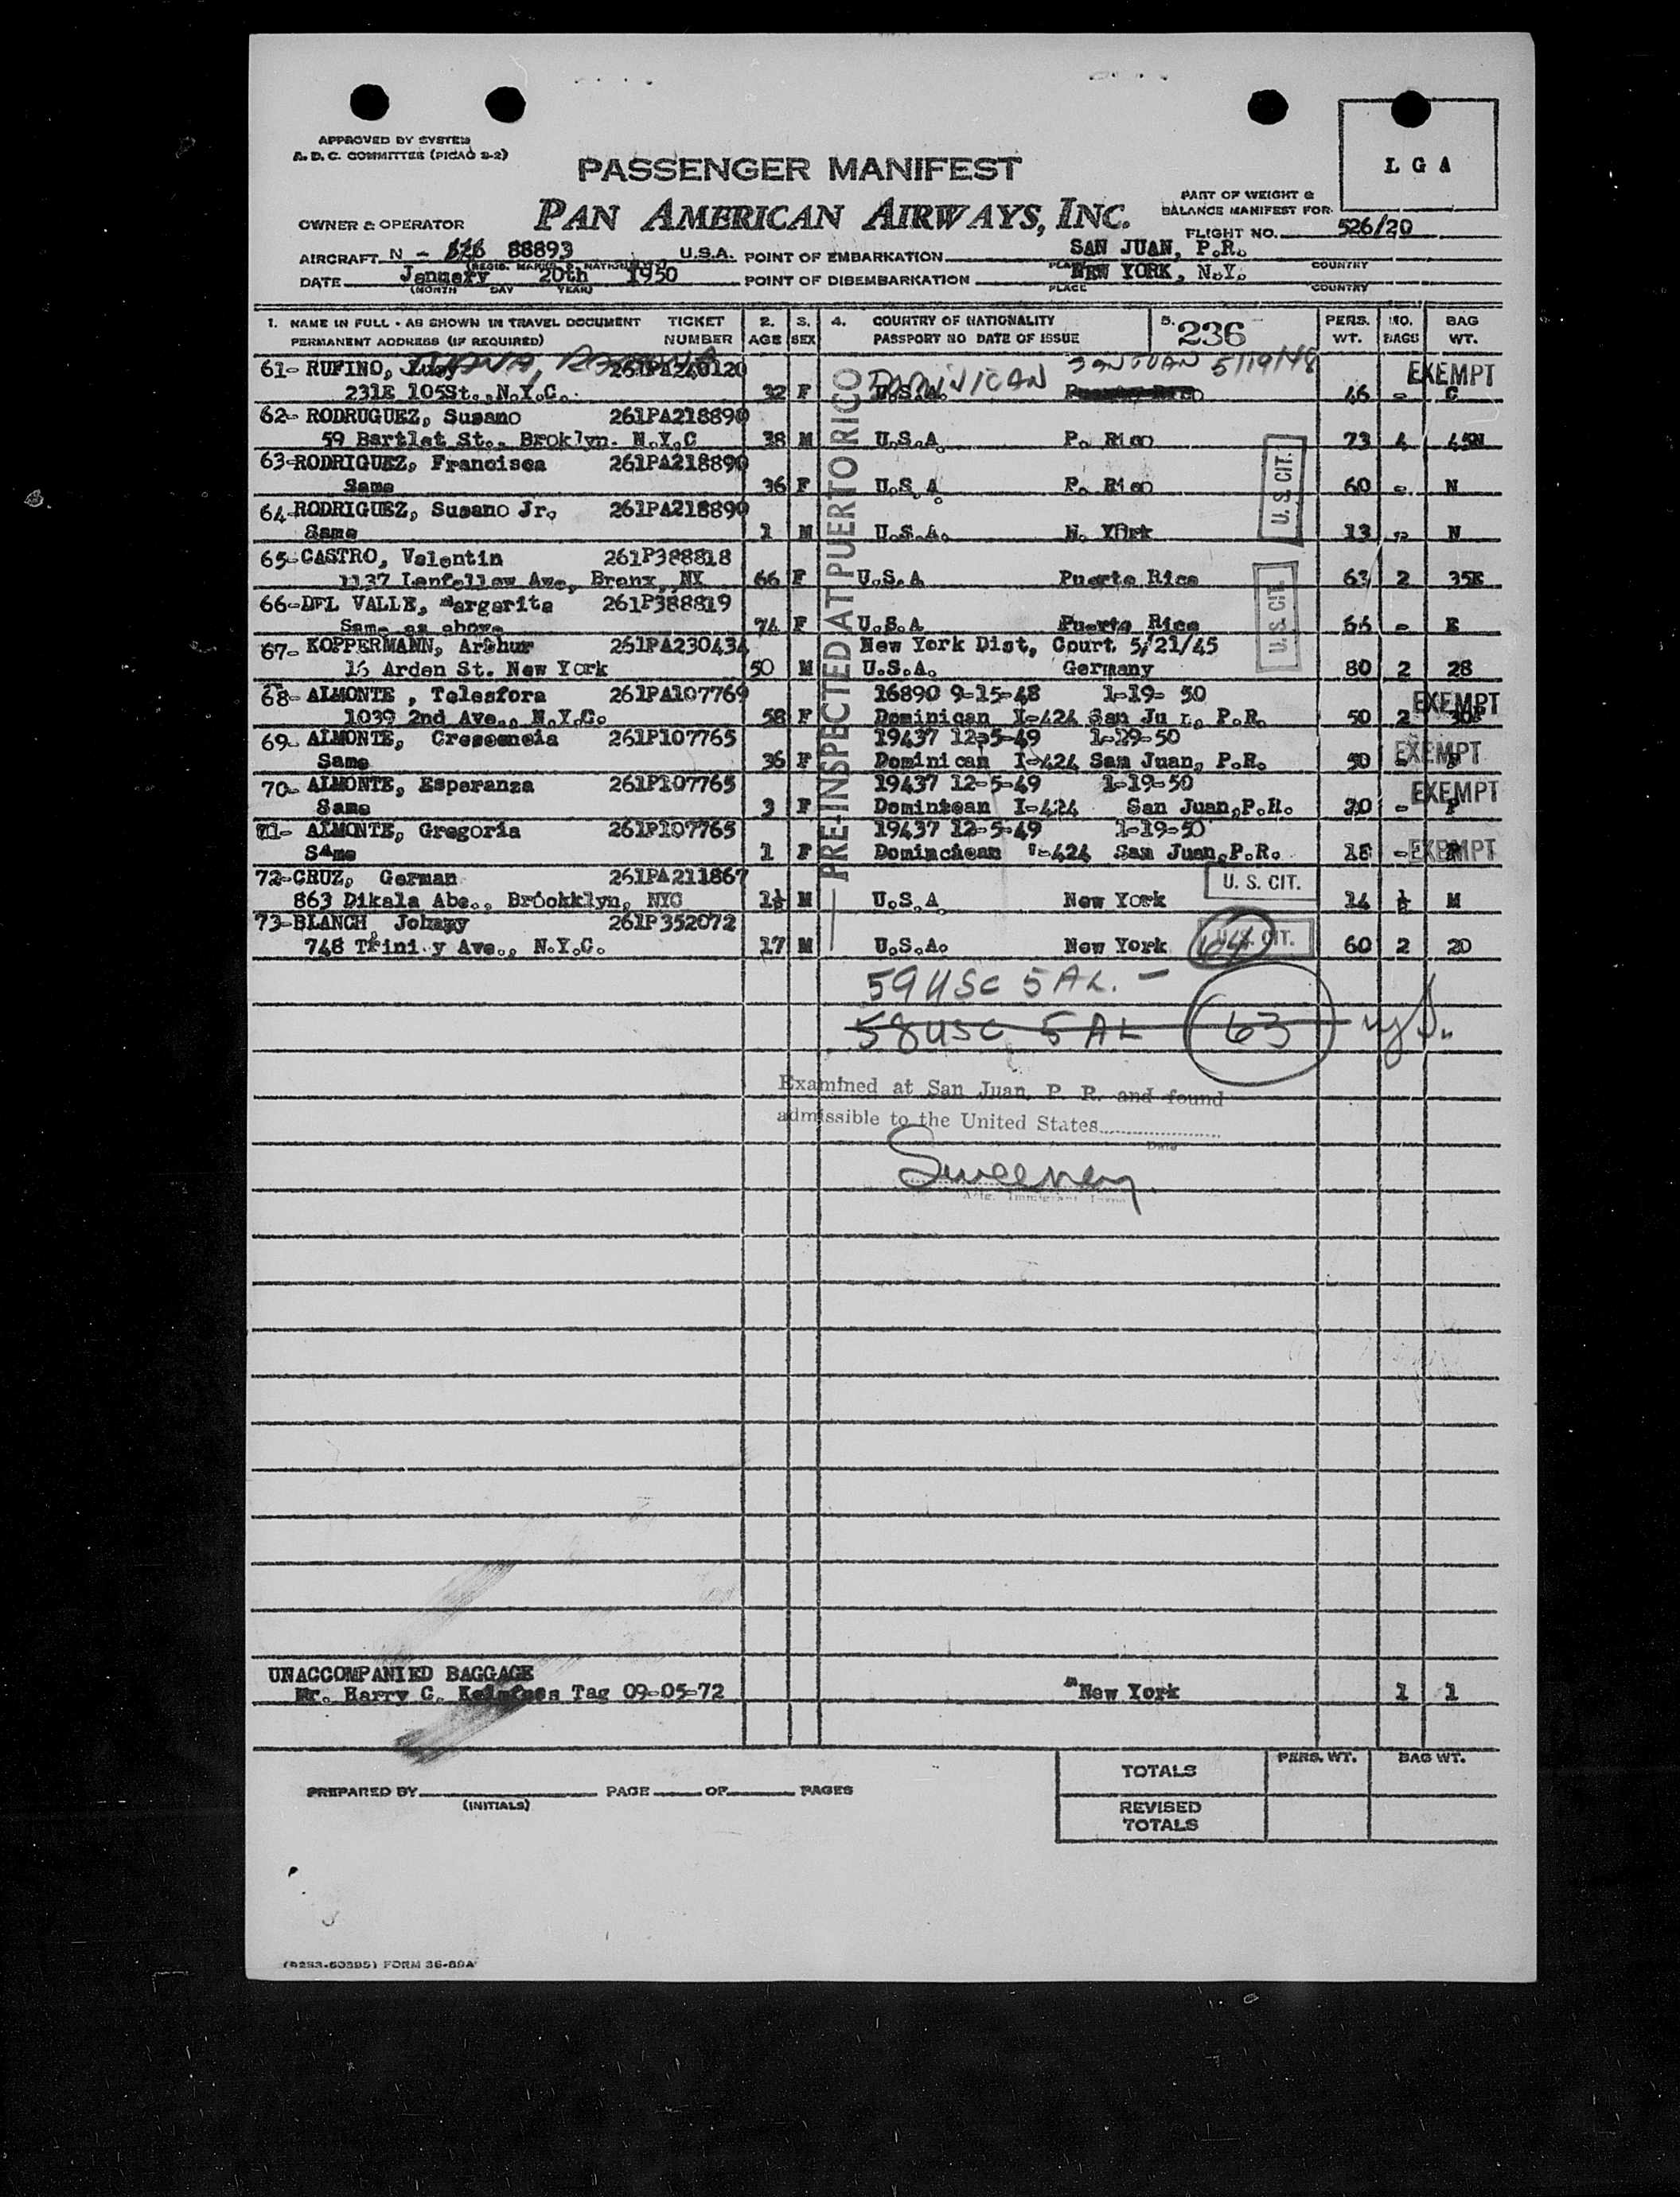 APPROVED BY SYSTEM
A. D. C. COMMITTEE (PICAO 2-2)
PASSENGER MANIFEST
L G A
PART OF WEIGHT &
BALANCE MANIFEST FOR
OWNER & OPERATOR
PAN AMERICAN AIRWAYS, INC.
FLIGHT NO. 526/20
AIRCRAFT N - 88893 U.S.A. POINT OF EMBARKATION SAN JUAN, P.R.
PLACE COUNTRY
DATE January 20th 1950 POINT OF DISEMBARKATION NEW YORK, N.Y.
(MONTH DAY YEAR) PLACE COUNTRY
1. NAME IN FULL - AS SHOWN IN TRAVEL DOCUMENT TICKET 2. 3. 4. COUNTRY OF NATIONALITY 5. 236 PERS. NO. BAG
PERMANENT ADDRESS (IF REQUIRED) NUMBER AGE SEX PASSPORT NO DATE OF ISSUE WT. BAGS WT.
61- RUFINO, 261PA240120 DOMINICAN SAN JUAN 5/19/48 EXEMPT
231E 105St., N.Y.C. 32 F U.S.A. 46 - C
62- RODRUGUEZ, Susano 261PA218890
59 Bartlet St., Broklyn. N.Y.C 38 M U.S.A. P. Rico 73 4 45N
63-RODRIGUEZ, Francisca 261PA218890
Same 36 F U.S.A. P. Rico 60 - N
64-RODRIGUEZ, Susano Jr. 261PA218890
Same 1 M U.S.A. N. York 13 - N
U. S. CIT.
65-CASTRO, Valentin 261P388818
1137 Lonfellow Ave, Bronx, NY 66 F U.S.A Puerto Rico 63 2 35E
66-DEL VALLE, Margarita 261P388819
Same as above 74 F U.S.A Puerto Rico 66 - E
U. S. CIT.
67- KOPPERMANN, Arthur 261PA230434 New York Dist, Court 5/21/45
16 Arden St. New York 50 M U.S.A. Germany 80 2 28
68- ALMONTE , Telesfora 261PA107769 16890 9-15-48 1-19- 50 EXEMPT
1039 2nd Ave., N.Y.C. 58 F Dominican I-424 San Ju , P.R. 50 2 30P
69- ALMONTE, Crescencia 261P107765 19437 12-5-49 1-19-50 EXEMPT
Same 36 F Dominican I-424 San Juan, P.R. 50 -
70- ALMONTE, Esperanza 261P107765 19437 12-5-49 1-19-50 EXEMPT
Same 3 F I-424 San Juan,P.R. 20 - P
71- ALMONTE, Gregoria 261P107765 19437 12-5-49 1-19-50
Same 1 F -424 San Juan,P.R. 18 - EXEMPT
72-CRUZ, German 261PA211867 U. S. CIT.
863 Dikala Abe., Brookklyn, NYC 1½ M U.S.A New York 14 ½ M
73-BLANCH, Johnny 261P352072
748 Trini y Ave., N.Y.C. 17 M U.S.A. New York 64 U. S. CIT. 60 2 20
PRE-INSPECTED AT PUERTO RICO
59 USC 5 AL. -
58 USC 5 AL 63
Examined at San Juan, P. R. and found
admissible to the United States
Date
Sweeney
UNACCOMPANIED BAGGAGE
Mr. Harry C. Tag 09-05-72 New York 1 1
PERS. WT. BAG WT.
TOTALS
PREPARED BY PAGE OF PAGES
(INITIALS)
REVISED
TOTALS
FORM 36-89A